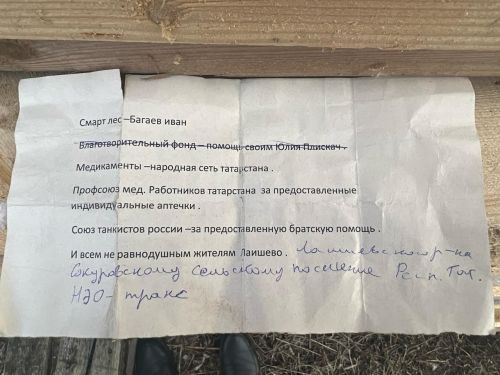 Смарт лес –Багаев иван
Благотворительный фонд – помощь своим Юлия Плискач .
Медикаменты –народная сеть татарстана .
Профсоюз мед. Работников татарстана за предоставленные
индивидуальные аптечки .
Союз танкистов россии –за предоставленную братскую помощь .
И всем не равнодушным жителям Лаишево . Лаишевского р-на
Сокуровскому сельскому поселение Респ. Тат.
НЭО- транс